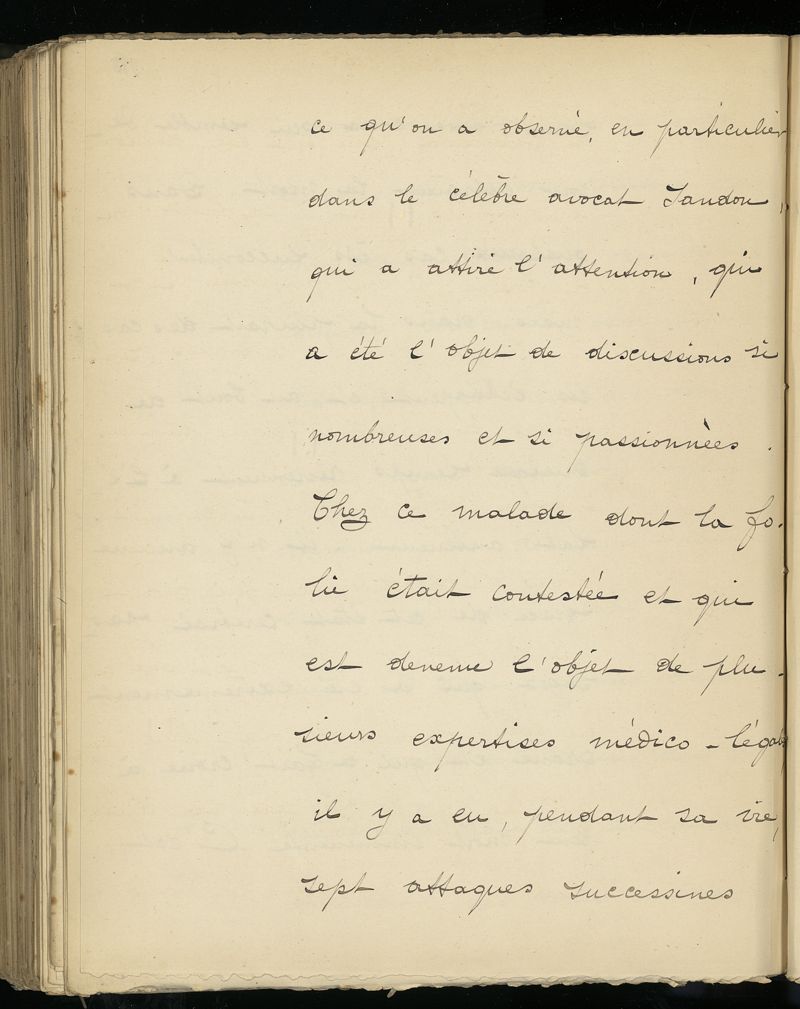 ce qu'on a observé, en particulier
dans le célèbre avocat Sandon,
qui a attiré l'attention, qui
a été l'objet de discussions si
nombreuses et si passionnées.
Chez ce malade dont la fo-
lie était contestée et qui
est devenue l'objet de plu-
sieurs expertises médico-légales
il y a eu, pendant sa vie,
sept attaques successives